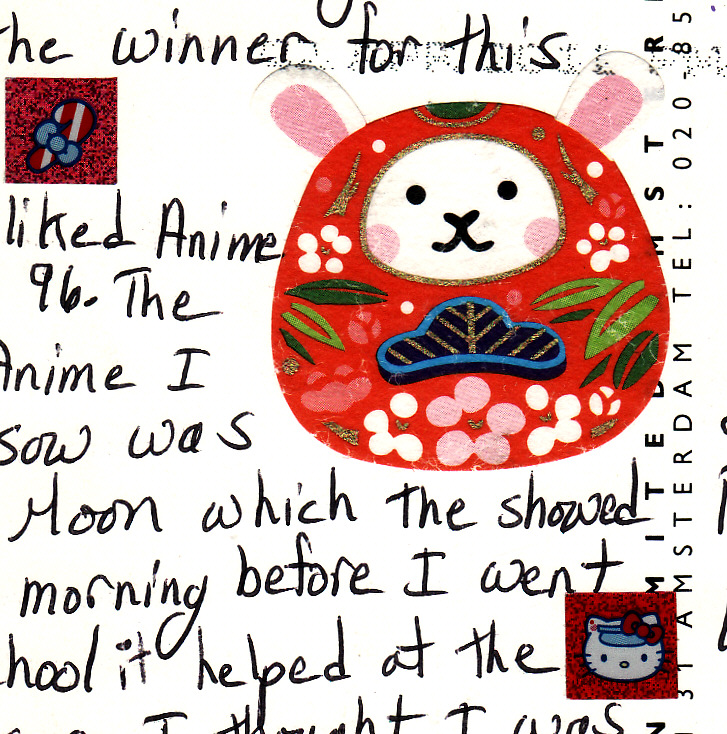 the winner for this
liked Anime
96. The
Anime I
sow was
Moon which the showed
morning before I went
hool it helped at the
I thought I was
MITED ST R
31 AMSTERDAM TEL: 020-85